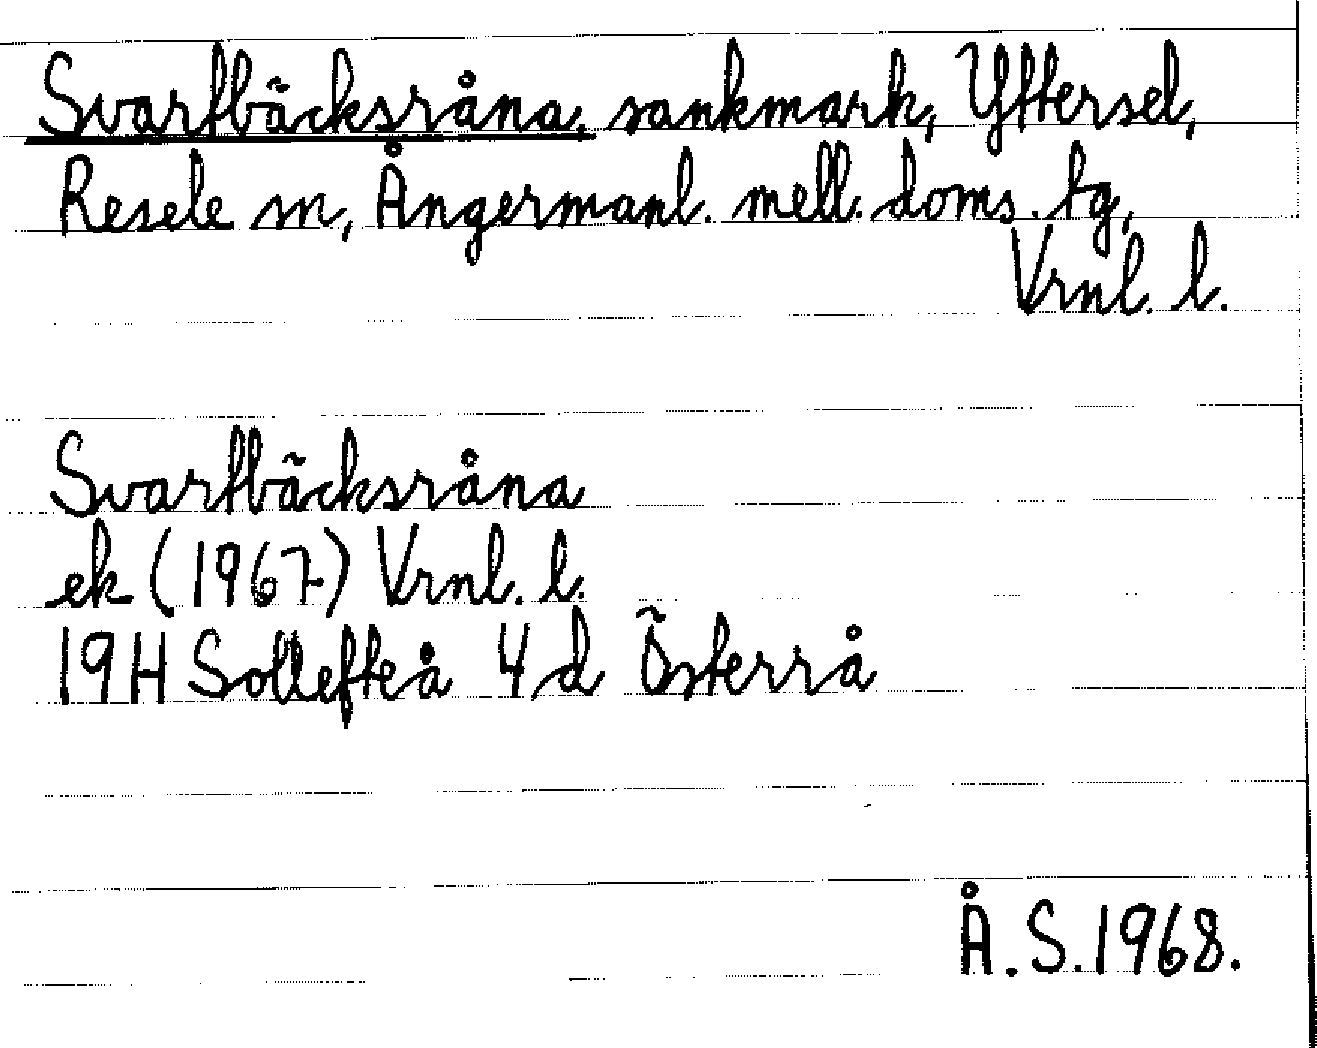 Svartbäcksråna, sankmark, Yttersel,
Resele sn, Ångermanl. mell. doms. tg,
Vrnl. l.
Svartbäcksråna
ek (1967) Vrnl. l.
19H Sollefteå 4 d Österrå
Å.S.1968.